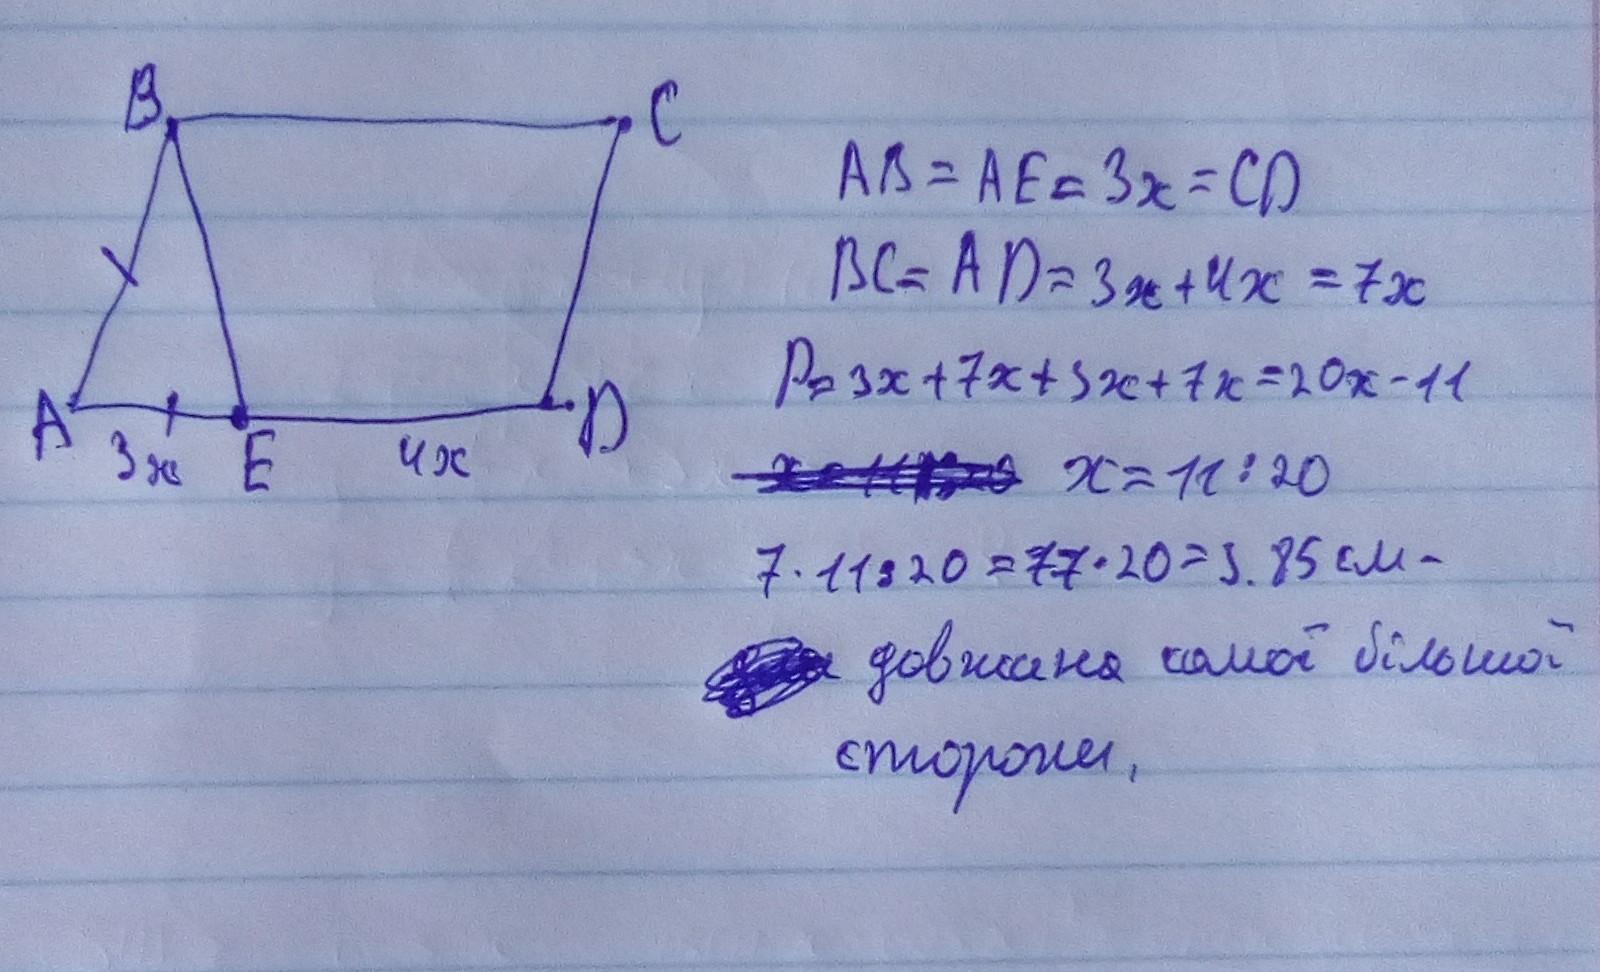 B
C
A
3x
E
4x
D
AB = AE = 3x = CD
BC = AD = 3x + 4x = 7x
P = 3x + 7x + 3x + 7x = 20x - 11
x = 11 : 20
7 · 11 : 20 = 77 · 20 = 3.85 см -
довжина самої більшої
сторони,